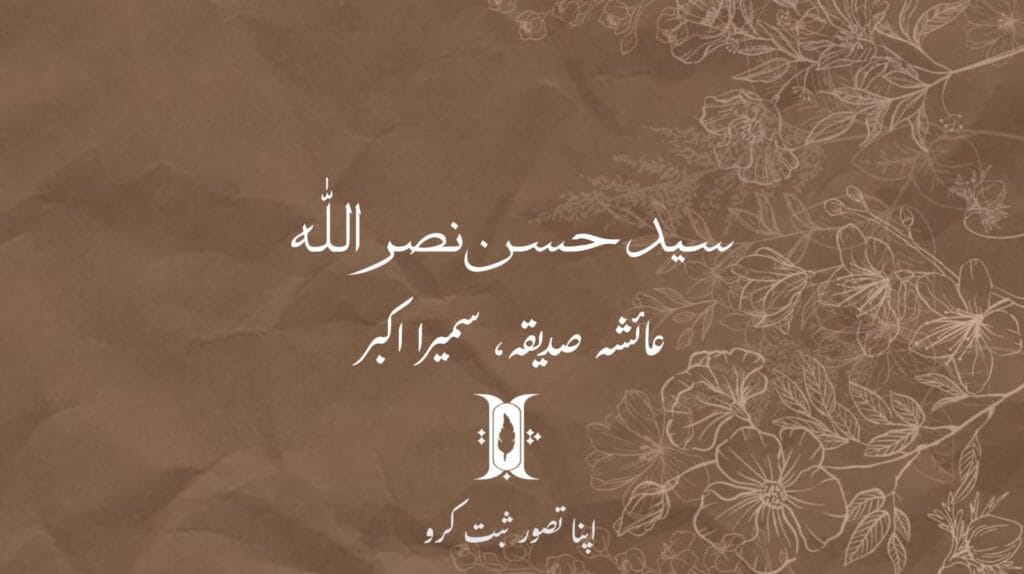 سید حسن نصر اللہ
عائشہ صدیقہ، سمیرا اکبر
اپنا تصور ثبت کرو